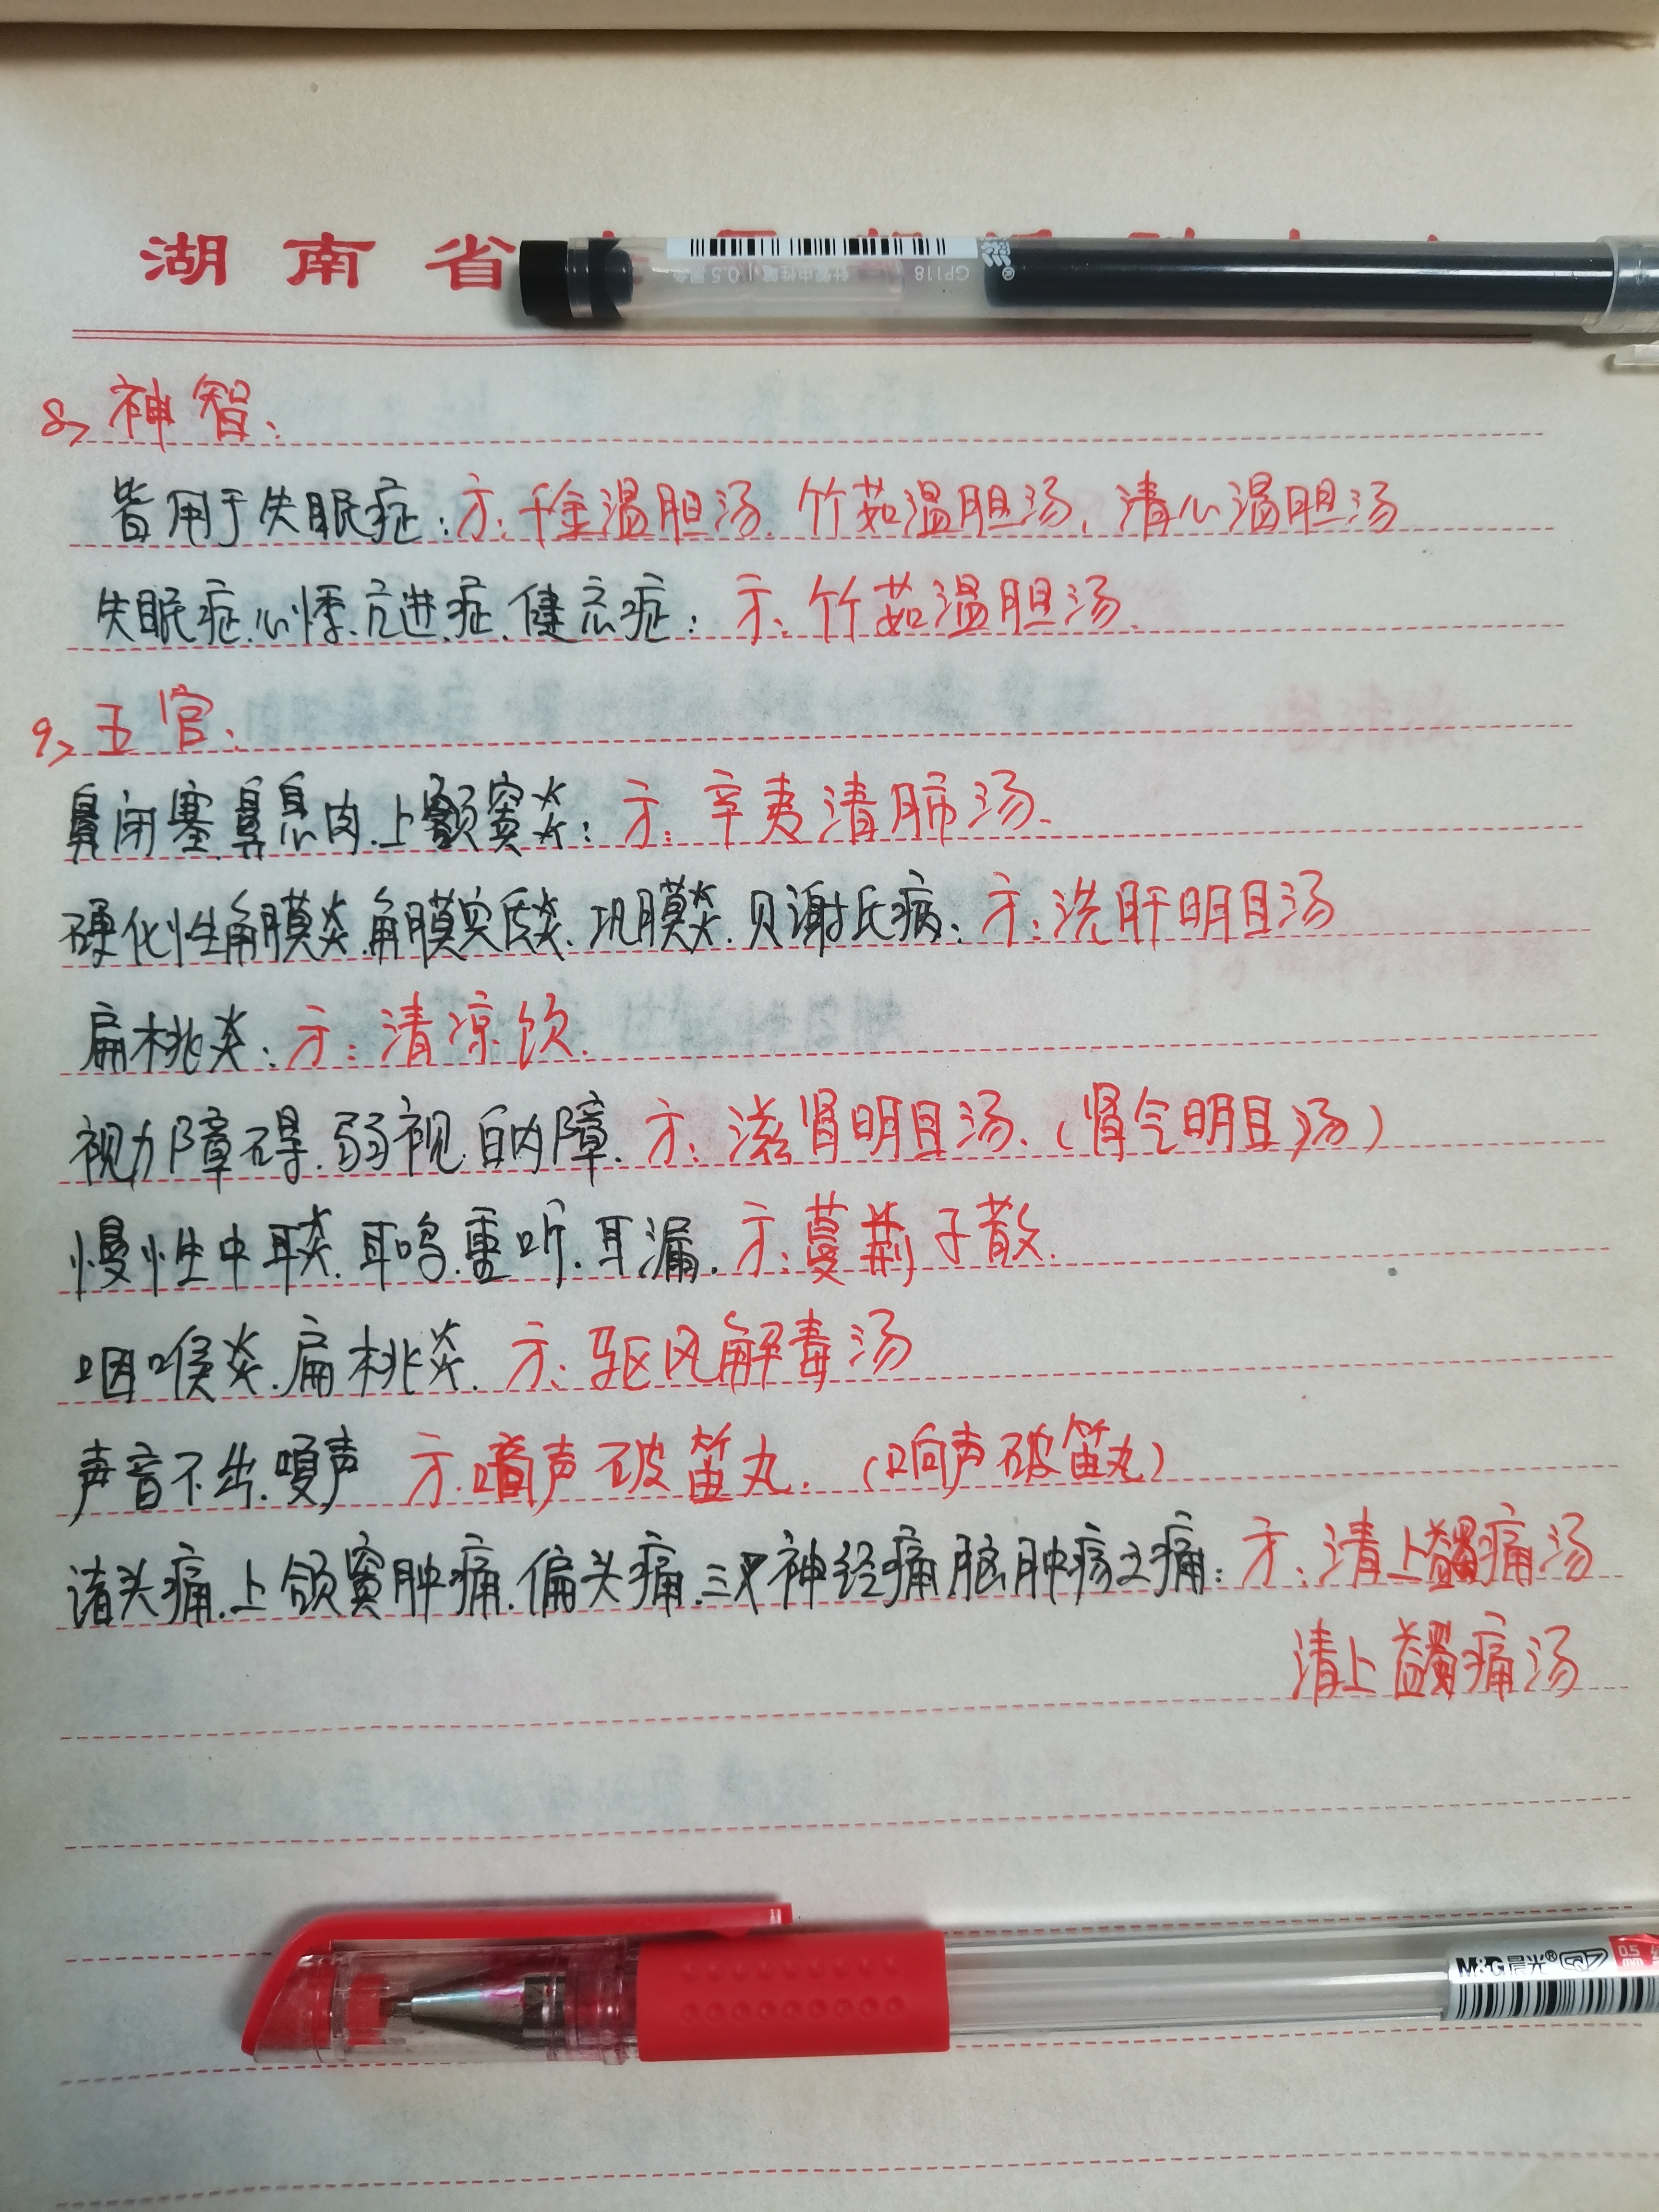 湖南省
GP118
0.5
8、神智:
皆用于失眠症:方:千金温胆汤.竹茹温胆汤、清心温胆汤
失眠症.心悸.亢进症.健忘症:方:竹茹温胆汤.
9、五官:
鼻闭塞.鼻息肉.上颚窦炎:方:辛夷清肺汤.
硬化性角膜炎.角膜实质炎.巩膜炎.贝谢氏病:方:洗肝明目汤
扁桃炎:方:清凉饮.
视力障碍.弱视.白内障.方:滋肾明目汤.(肾气明目汤)
慢性中耳炎.耳鸣.重听.耳漏.方:蔓荆子散.
咽喉炎.扁桃炎.方:驱风解毒汤
声音不出.嗄声 方:响声破笛丸.(响声破笛丸)
诸头痛.上颌窦肿痛.偏头痛.三叉神经痛.脑肿疡之痛:方:清上蠲痛汤
清上蠲痛汤
M&G晨光®
0.5mm